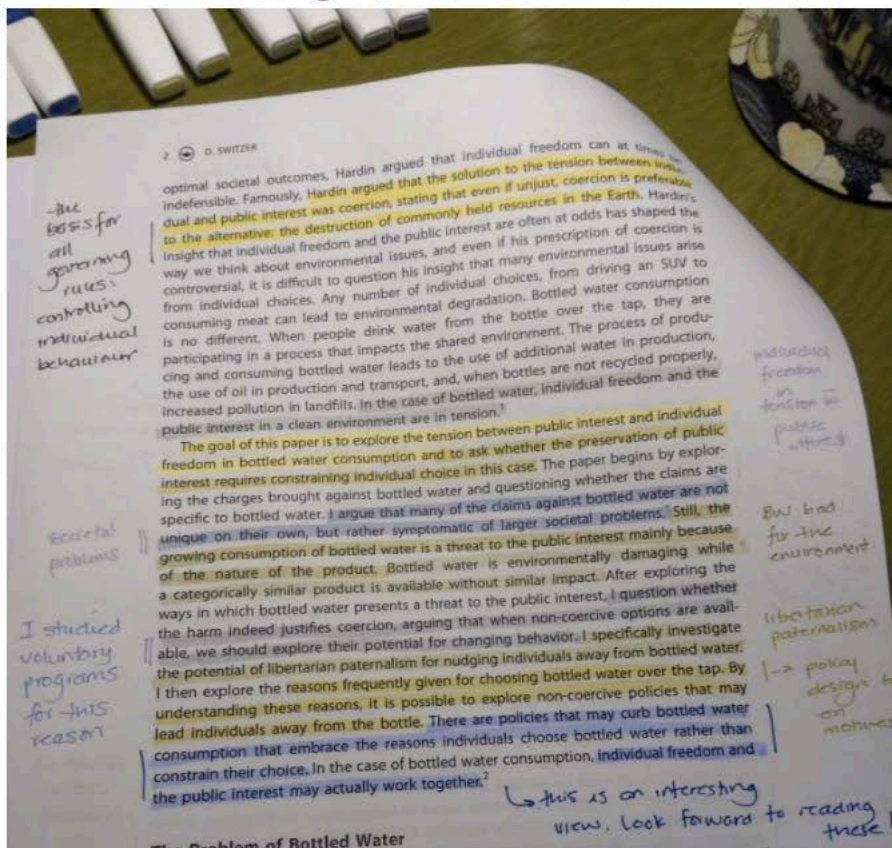 2 D. SWITZER
optimal societal outcomes, Hardin argued that individual freedom can at times
indefensible. Famously, Hardin argued that the solution to the tension between indivi-
dual and public interest was coercion, stating that even if unjust, coercion is preferable
to the alternative: the destruction of commonly held resources in the Earth. Hardin's
insight that individual freedom and the public interest are often at odds has shaped the
way we think about environmental issues, and even if his prescription of coercion is
controversial, it is difficult to question his insight that many environmental issues arise
from individual choices. Any number of individual choices, from driving an SUV to
consuming meat can lead to environmental degradation. Bottled water consumption
is no different. When people drink water from the bottle over the tap, they are
participating in a process that impacts the shared environment. The process of produ-
cing and consuming bottled water leads to the use of additional water in production,
the use of oil in production and transport, and, when bottles are not recycled properly,
increased pollution in landfills. In the case of bottled water, individual freedom and the
public interest in a clean environment are in tension.¹
The goal of this paper is to explore the tension between public interest and individual
freedom in bottled water consumption and to ask whether the preservation of public
interest requires constraining individual choice in this case. The paper begins by explor-
ing the charges brought against bottled water and questioning whether the claims are
specific to bottled water. I argue that many of the claims against bottled water are not
unique on their own, but rather symptomatic of larger societal problems. Still, the
growing consumption of bottled water is a threat to the public interest mainly because
of the nature of the product. Bottled water is environmentally damaging while
a categorically similar product is available without similar impact. After exploring the
ways in which bottled water presents a threat to the public interest, I question whether
the harm indeed justifies coercion, arguing that when non-coercive options are avail-
able, we should explore their potential for changing behavior. I specifically investigate
the potential of libertarian paternalism for nudging individuals away from bottled water.
I then explore the reasons frequently given for choosing bottled water over the tap. By
understanding these reasons, it is possible to explore non-coercive policies that may
lead individuals away from the bottle. There are policies that may curb bottled water
consumption that embrace the reasons individuals choose bottled water rather than
constrain their choice. In the case of bottled water consumption, individual freedom and
the public interest may actually work together.²
The Problem of Bottled Water
-the
basis for
all
governing
rules:
controlling
individual
behaviour
societal
problems
I studied
voluntary
programs
for this
reason
individual
freedom
in
tension
public
interest
BW bad
for the
environment
libertarian
paternalism
→ policy
design
on
↳ this is an interesting
view. Look forward to reading
these!